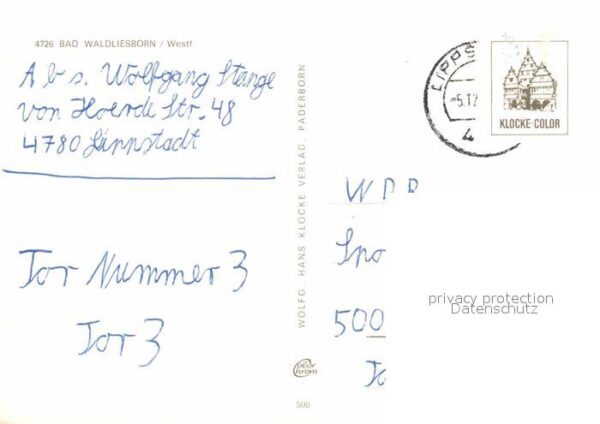 4726 BAD WALDLIESBORN / Westf.
Abs. Wolfgang Stange
von Hoerde Str. 48
4780 Lippstadt
Tor Nummer 3
Tor 3
WOLFG. HANS KLOCKE VERLAG, PADERBORN
color
chrom
500
LIPPS
-5.12
4
KLOCKE-COLOR
WDR
Spo
500
privacy protection
Datenschutz